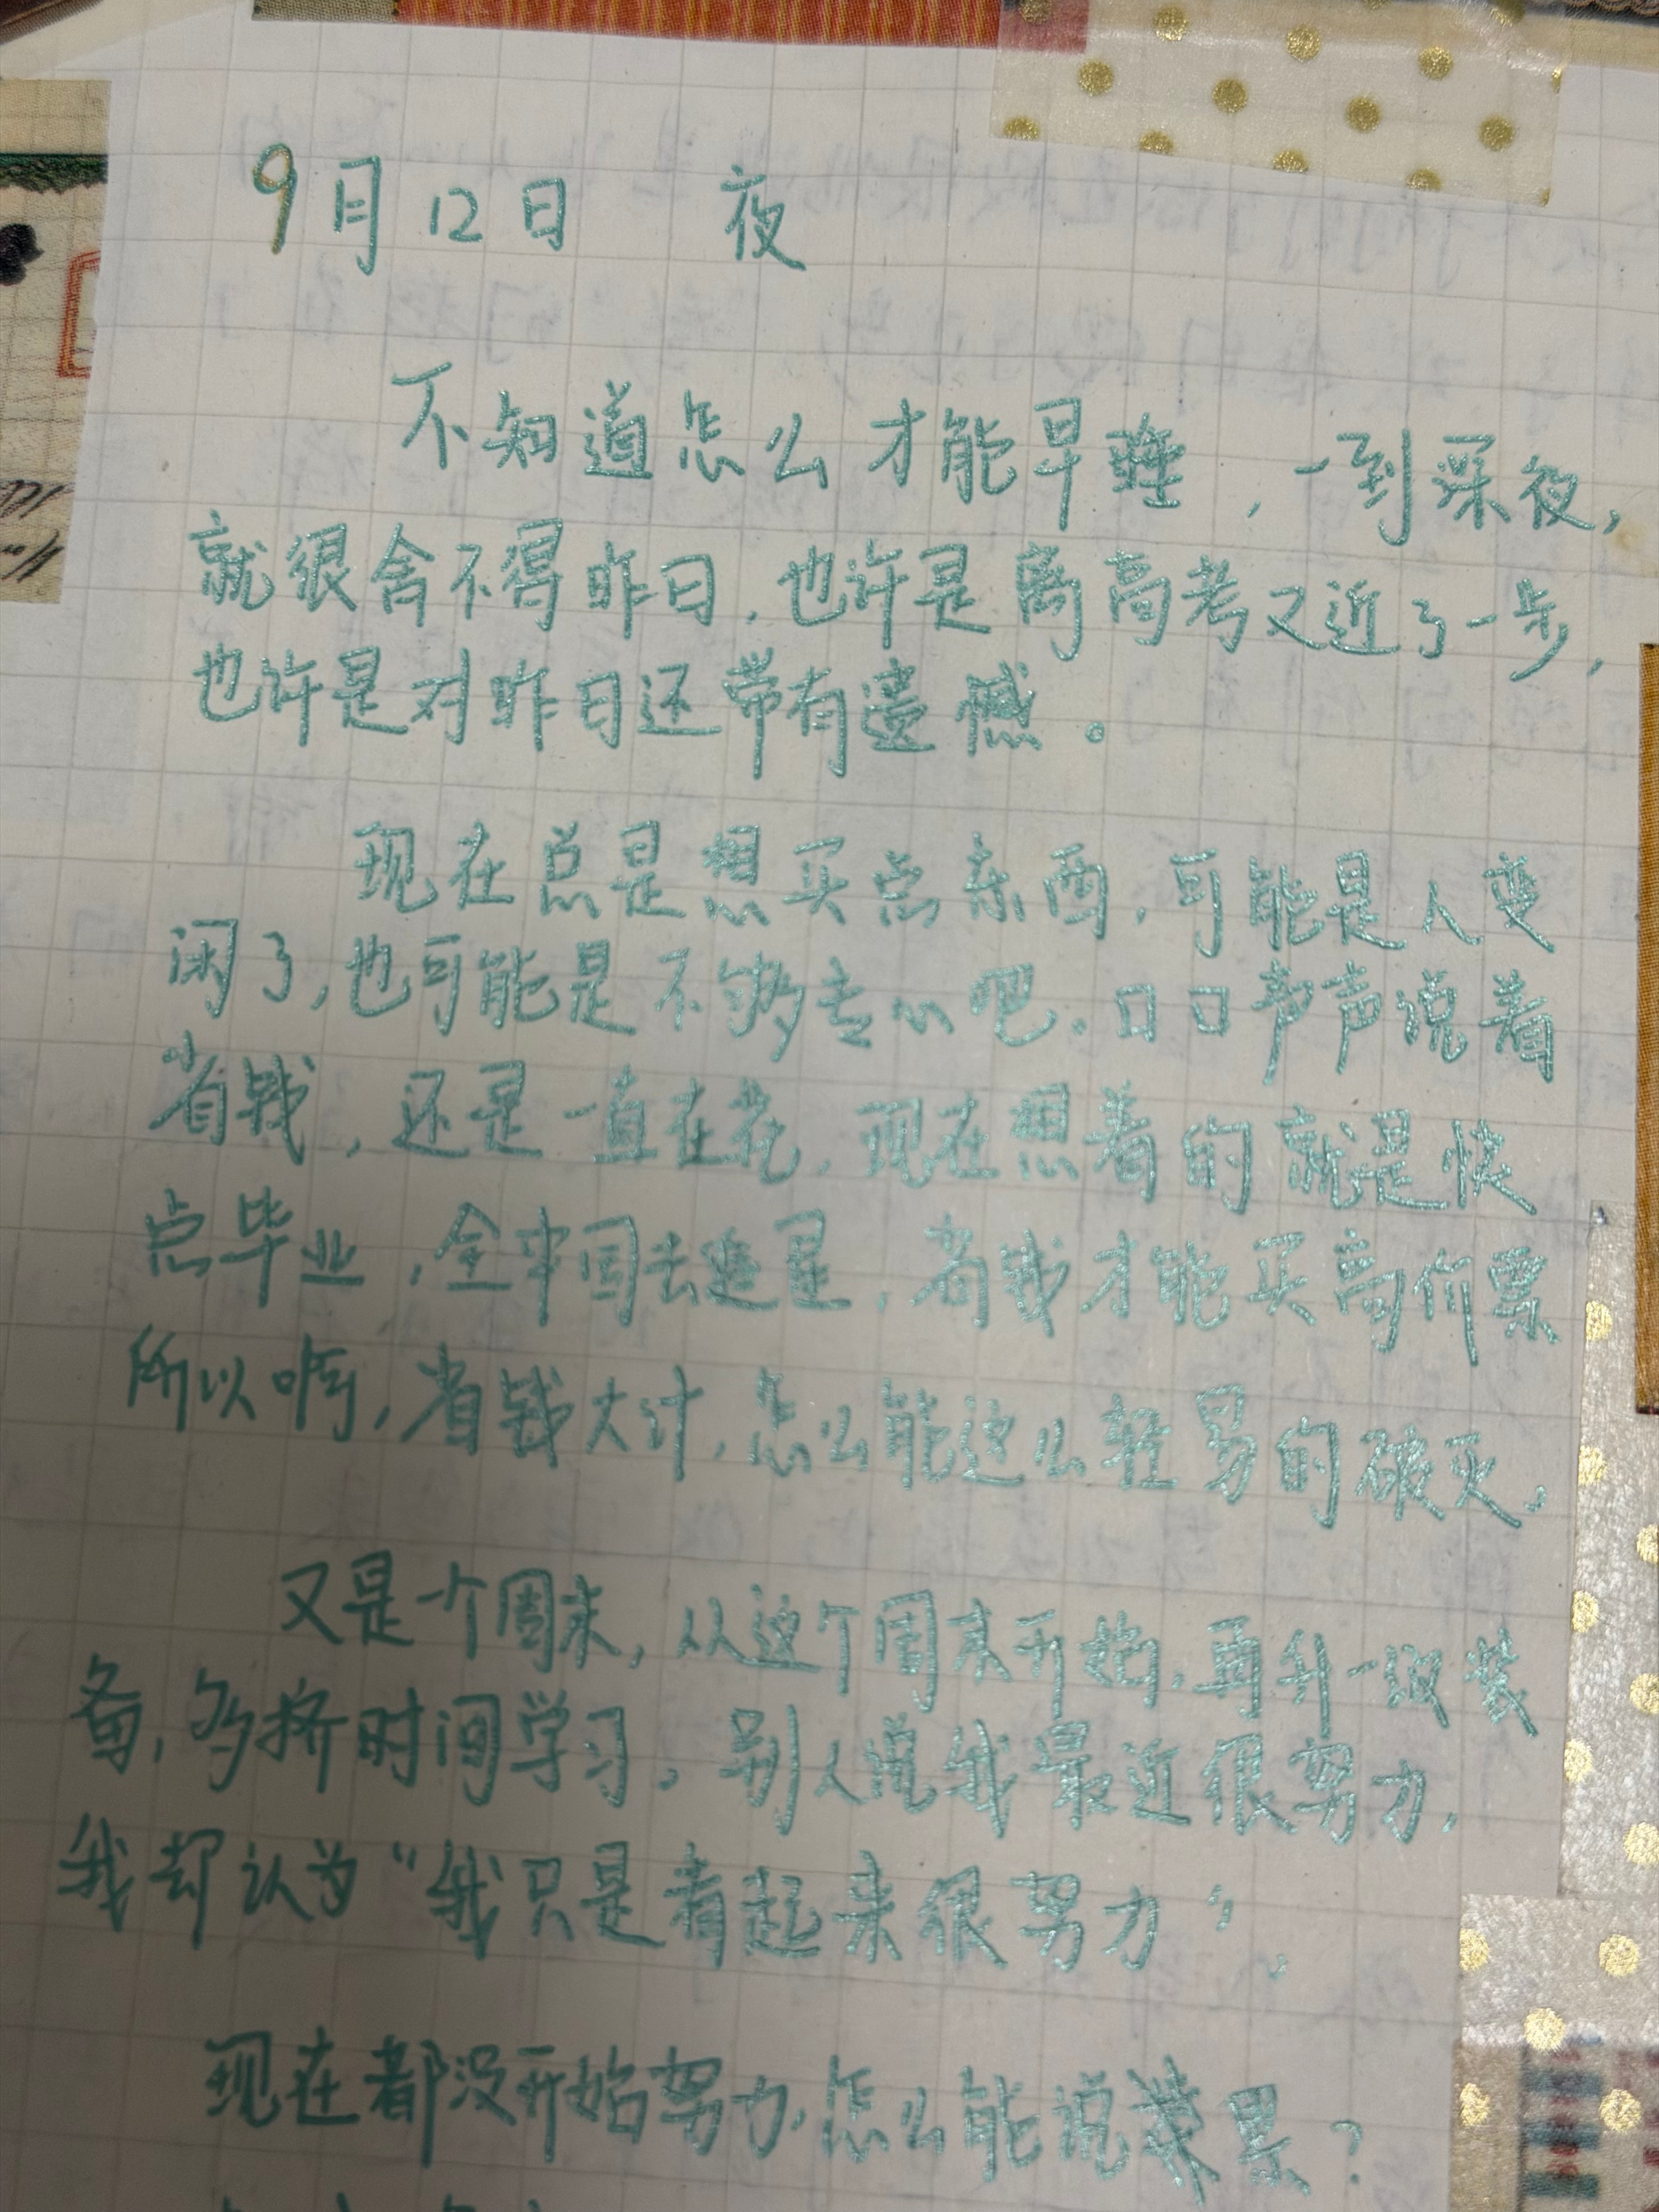 9月12日 夜
不知道怎么才能早睡,一到深夜,
就很舍不得昨日,也许是离高考又近了一步,
也许是对昨日还带有遗憾。
现在总是想买点东西,可能是人变
闲了,也可能是不够专心吧。口口声声说着
省钱,还是一直在花,现在想着的就是快
点毕业,全中国去追星,省钱才能买高价票
所以啊,省钱大计,怎么能这么轻易的破灭。
又是一个周末,从这个周末开始,再升一级装
备,多挤时间学习。别人说我最近很努力,
我却认为“我只是看起来很努力”。
现在都没开始努力,怎么能说结果?